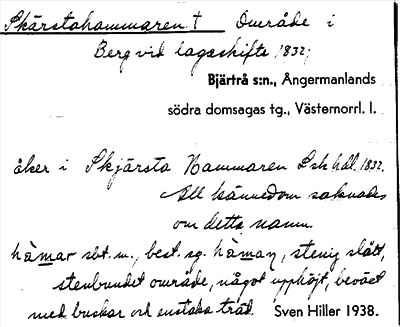 Skärstahammaren † Område i
Berg vid lagaskifte 1832;
Bjärtrå s:n., Ångermanlands
södra domsagas tg., Västernorrl. l.
åker i Skjärsta Hammaren Lsk hdl. 1832.
All kännedom saknades
om detta namn.
hàmar sbt. m., best. sg. hàman, stenig slätt,
stenbundet område, något upphöjt, beväxt
med buskar och enstaka träd. Sven Hiller 1938.